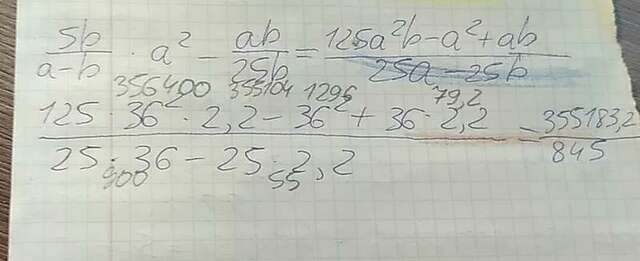 5b/(a-b) · a² - ab/25b = (125a²b-a²+ab)/(25a-25b)
356400 355104 1296 79,2
(125 · 36² · 2,2 - 36² + 36 · 2,2)/(25 · 36 - 25 · 2,2) = 355183,2/845
900 55